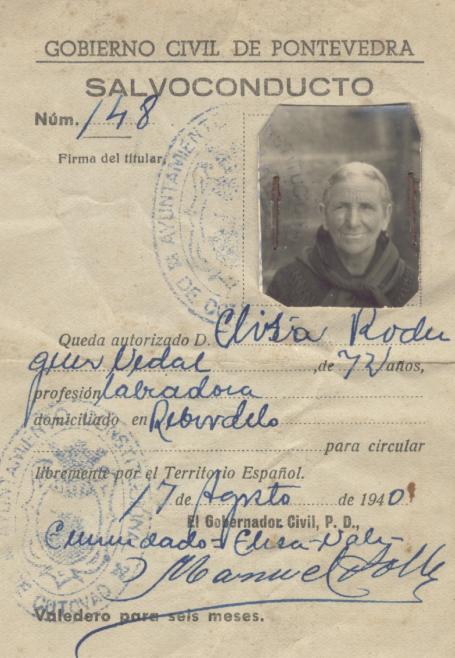 GOBIERNO CIVIL DE PONTEVEDRA
SALVOCONDUCTO
Núm. 148
Firma del titular,
Queda autorizado D. Elisa Rodri
guez Vidal, de 72 años,
profesión labradora
domiciliado en Rebordelo
para circular
libremente por el Territorio Español.
17 de Agosto de 1940
El Gobernador Civil, P. D.,
Enmendado = Elisa = Vale
Manuel
Valedero para seis meses.
AYUNTAMIENTO
DE CO
COTOVAD